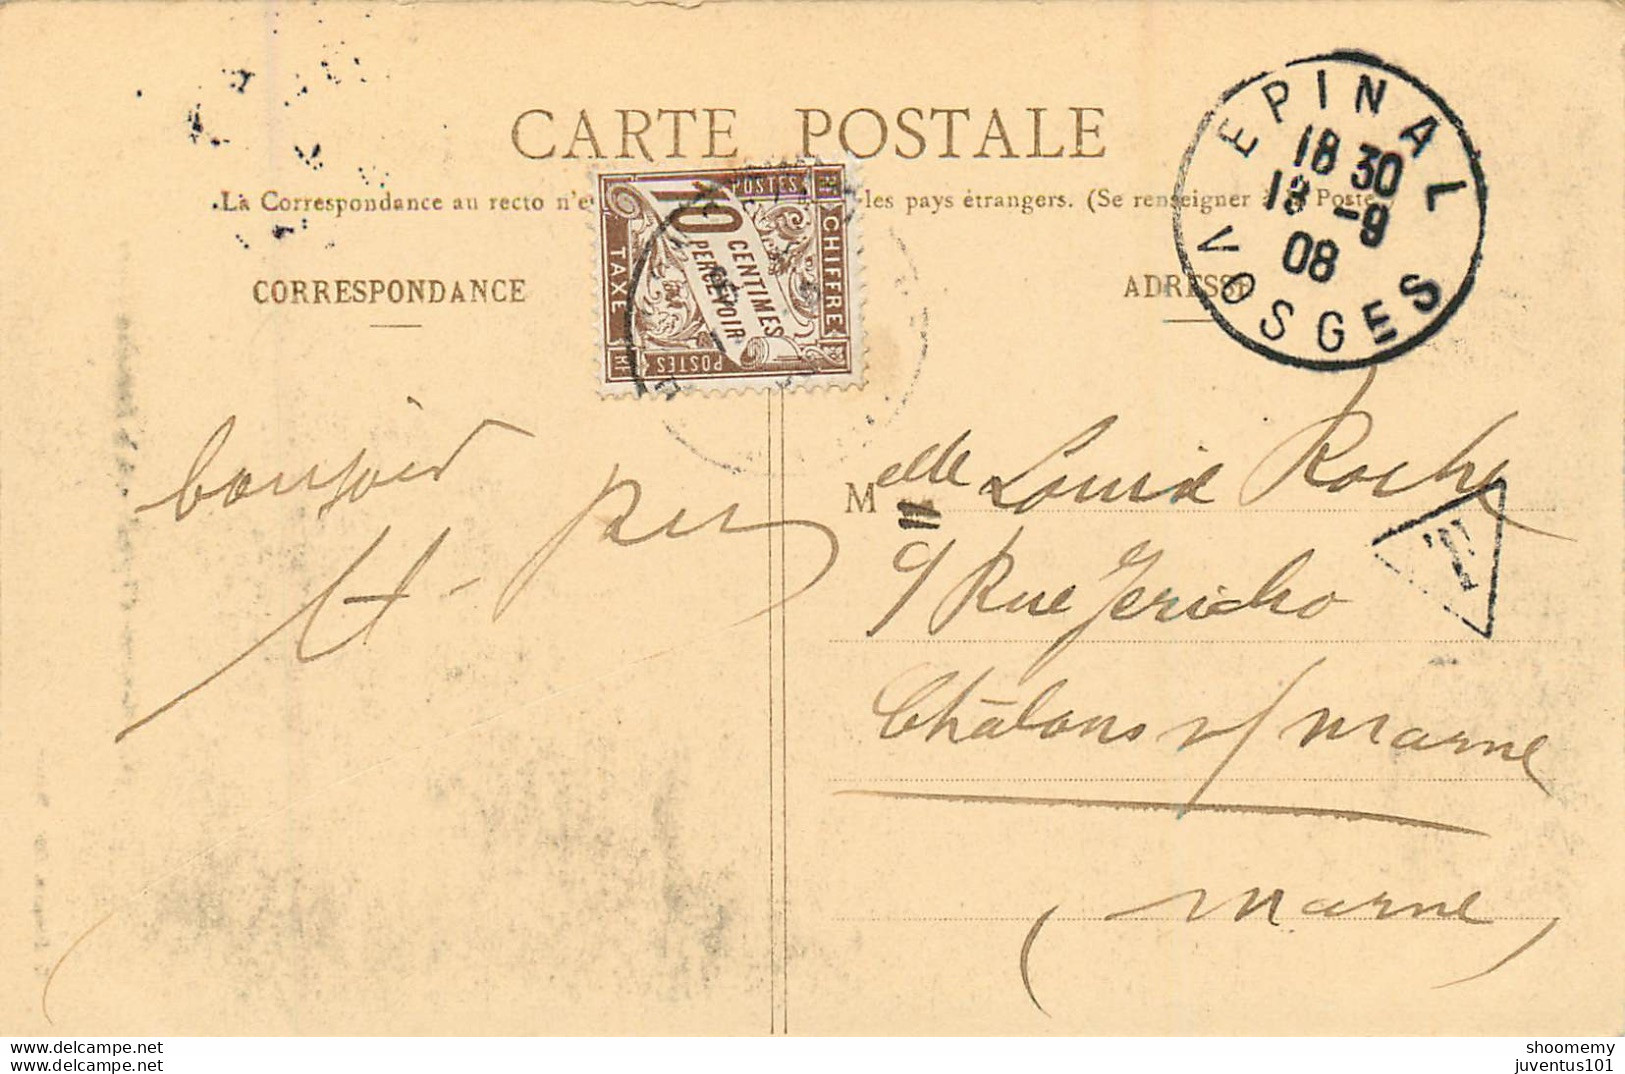 CARTE POSTALE
La Correspondance au recto n'e les pays étrangers. (Se renseigner à Poste
CORRESPONDANCE
ADRESSE
EPINAL
18 30
18 -9
08
VOSGES
POSTES
CHIFFRE
TAXE
10
CENTIMES
PERCEVOIR
POSTES
RF
T
bonsoir
M elle Louise Roche
9 Rue Jericho
Châlons s/ Marne
(Marne)
delcampe.net
shoomemy
juventus101